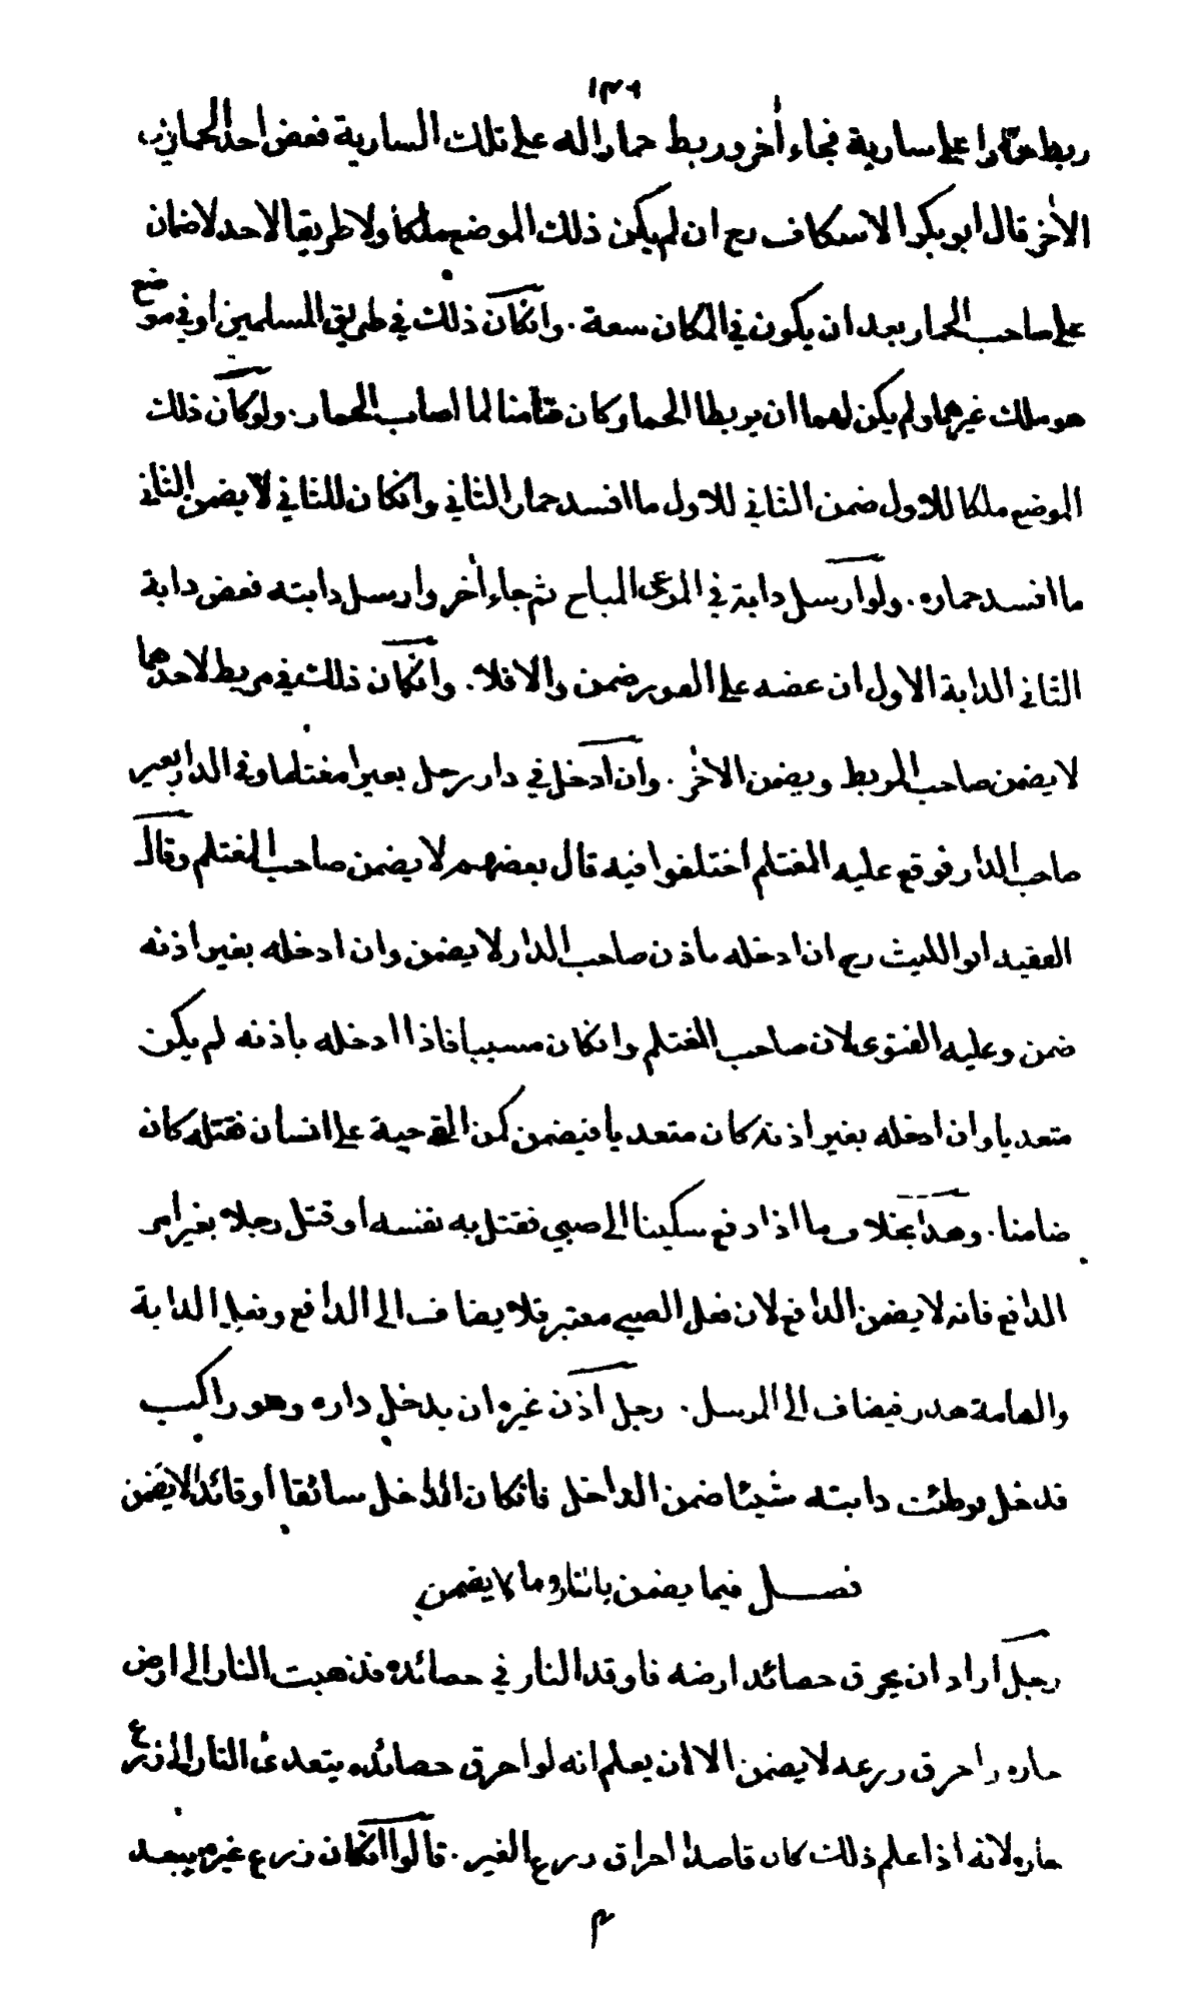 ١٣٦
ربط حمارا على سارية فجاء آخر وربط حماراله على تلك السارية فعض احد الحمارين
الآخر قال ابو بكر الاسكاف رح ان لم يكن ذلك الموضع ملكا ولا طريقا لاحد لاضمان
على صاحب الحمار بعد ان يكون في المكان سعة . وانكان ذلك في طريق المسلمين او في موضع
هو ملك غيرهما ولم يكن لهما ان يربطا الحمار كان ضامنا لما اصاب الحمار . ولوكان ذلك
الموضع ملكا للاول ضمن الثاني للاول ما افسد حمار الثاني وانكان للثاني لا يضمن الثاني
ما افسد حماره . ولو ارسل دابة في المرعى المباح ثم جاء آخر وارسل دابته فعض دابة
الثاني الدابة الاول ان عضه على الفور ضمن والا فلا . وانكان ذلك في مربط لاحدهما
لا يضمن صاحب المربط ويضمن الآخر . وان ادخل في دار رجل بعيرا مغتلما وفي الدار بعير
صاحب الدار فوقع عليه المغتلم اختلفوا فيه قال بعضهم لا يضمن صاحب المغتلم وقال
الفقيه ابو الليث رح ان ادخله باذن صاحب الدار لا يضمن وان ادخله بغير اذنه
ضمن وعليه الفتوى لان صاحب المغتلم وانكان مسببا فاذا ادخله باذنه لم يكن
متعديا وان ادخله بغير اذنه كان متعديا فيضمن كمن القى حية على انسان فقتله كان
ضامنا . وهذا بخلاف ما اذا دفع سكينا الى صبي فقتل به نفسه او قتل رجلا بغير امر
الدافع فانه لا يضمن الدافع لان فعل الصبي معتبر فلا يضاف الى الدافع وفعل الدابة
والهامة هدر فيضاف الى المرسل . رجل اذن غيره ان يدخل داره وهو راكب
فدخل فوطئت دابته شيئا ضمن الداخل فانكان الداخل سائقا او قائدا لا يضمن
فصل فيما يضمن بالنار وما لا يضمن
رجل اراد ان يحرق حصائد ارضه فاوقد النار في حصائده فذهبت النار الى ارض
جاره واحرق زرعه لا يضمن الا ان يعلم انه لو احرق حصائده يتعدى النار الى زرع
جاره لانه اذا علم ذلك كان قاصدا احراق زرع الغير . قالوا انكان زرع غيره يبعد
م